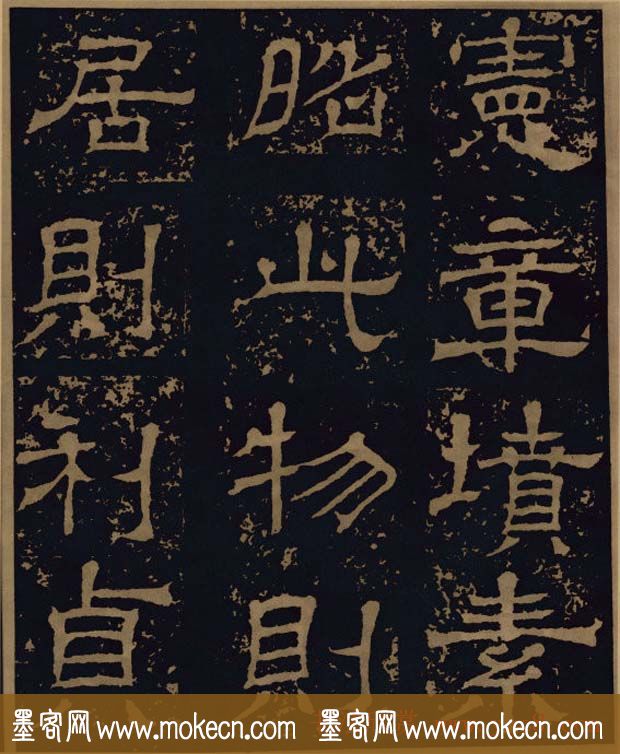 憲章墳素
昭此物則
居則利貞
墨客网 www.mokecn.com 墨客网 www.mokecn.com